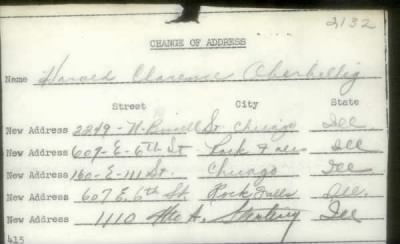 2132
CHANGE OF ADDRESS
Name Harold Clarence Oberhellig
Street City State
New Address 2249-N- St. Chicago Ill
New Address 607-E-6th St Rock Falls Ill
New Address 160-E-111 St. Chicago Ill
New Address 607 E. 6th St. Rock Falls Ill.
New Address 1110 Ave A. Sterling Ill
415